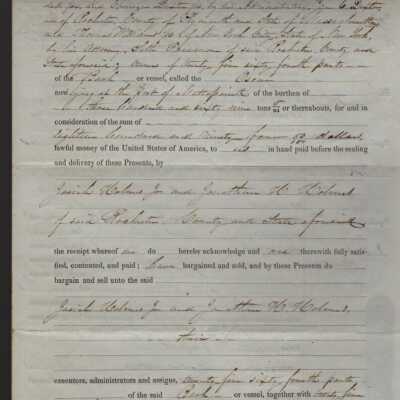 of Rochester County of Plymouth and State of Massachusetts
and Thomas of New York City, State of New York,
by his Attorney, Seth of said Rochester County and
State aforesaid; owners of twenty four sixty fourth parts
of the Bark or vessel, called the
now lying at the Port of Mattapoisett of the burthen of
three hundred and sixty nine tons or thereabouts, for and in
consideration of the sum of
eighteen hundred and ninety four dollars
lawful money of the United States of America, to us in hand paid before the sealing
and delivery of these Presents, by
Josiah Holmes Jr and Jonathan H. Holmes
of said Rochester County and State aforesaid
the receipt whereof we do hereby acknowledge and are therewith fully satis-
fied, contented, and paid; have bargained and sold, and by these Presents do
bargain and sell unto the said
Josiah Holmes Jr and Jonathan H. Holmes,
their
executors, administrators and assigns, twenty four sixty fourth parts
of the said Bark or vessel, together with twenty four